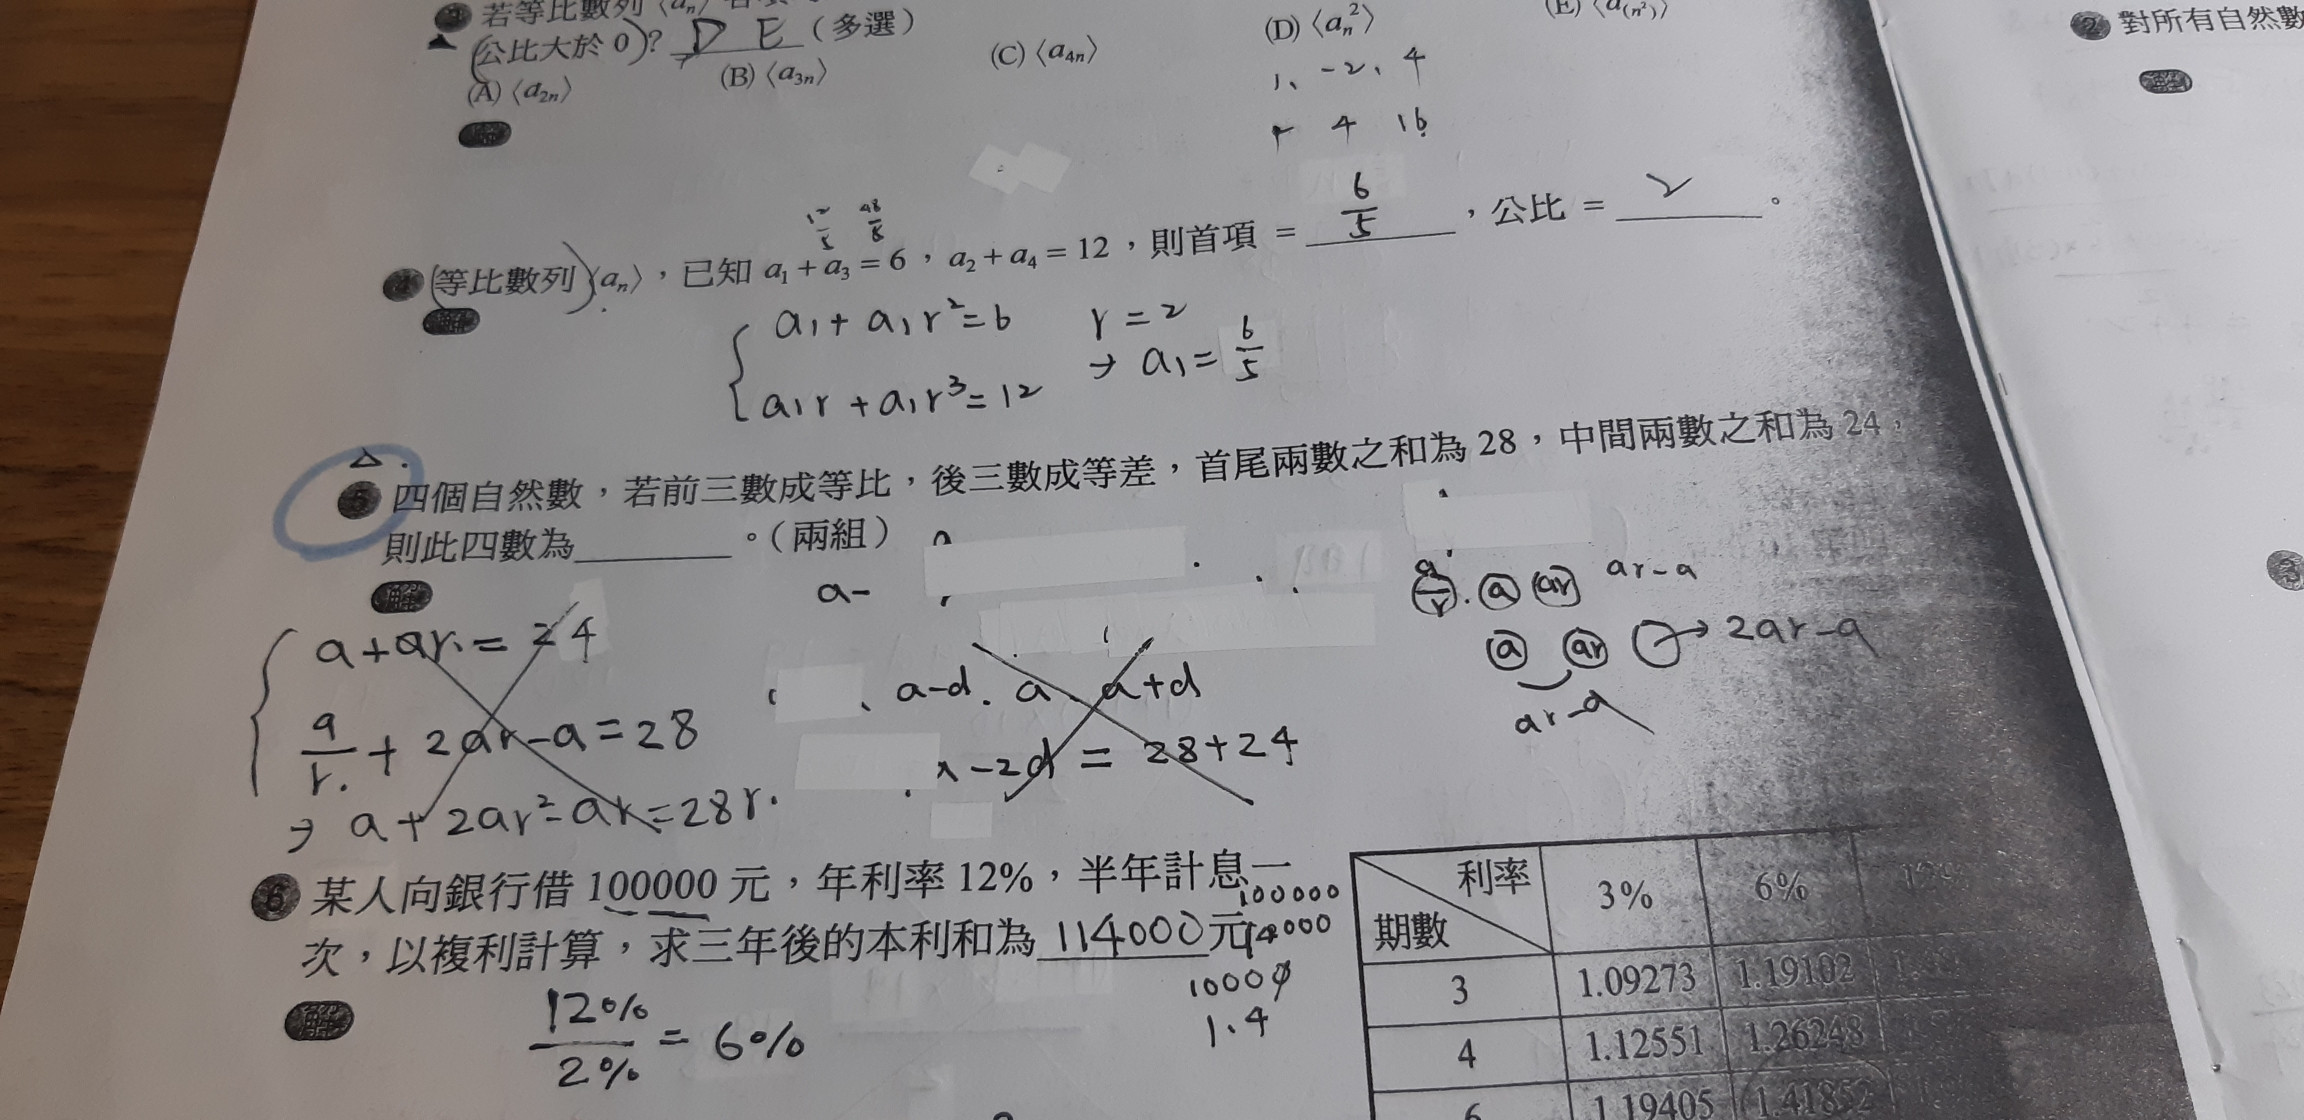 ③ 若等比數列⟨aₙ⟩
(公比大於 0)? D E (多選)
(A)⟨a₂ₙ⟩ (B)⟨a₃ₙ⟩ (C)⟨a₄ₙ⟩ (D)⟨aₙ²⟩ (E)⟨a₍ₙ²₎⟩
1、-2、4
4 16
12/5 48/5
④ (等比數列)⟨aₙ⟩,已知 a₁+a₃=6,a₂+a₄=12,則首項 = 6/5 ,公比 = 2 。
解
a₁+a₁r²=6 r=2
a₁r+a₁r³=12 → a₁=6/5
⑤ 四個自然數,若前三數成等比,後三數成等差,首尾兩數之和為 28,中間兩數之和為 24,
則此四數為 。(兩組)
解
a-
a/r . a ar ar-a
a+ar=24
a ar → 2ar-a
ar-a
a-d . a . a+d
a/r + 2ar-a=28
-2d = 28+24
→ a+2ar²-ar=28r
⑥ 某人向銀行借 100000 元,年利率 12%,半年計息一
100000
次,以複利計算,求三年後的本利和為 114000 元
14000
解
12%/2% = 6%
10000
1.4
利率 3% 6%
期數
3 1.09273 1.19102
4 1.12551 1.26248
6 1.19405 1.41852
② 對所有自然數
③